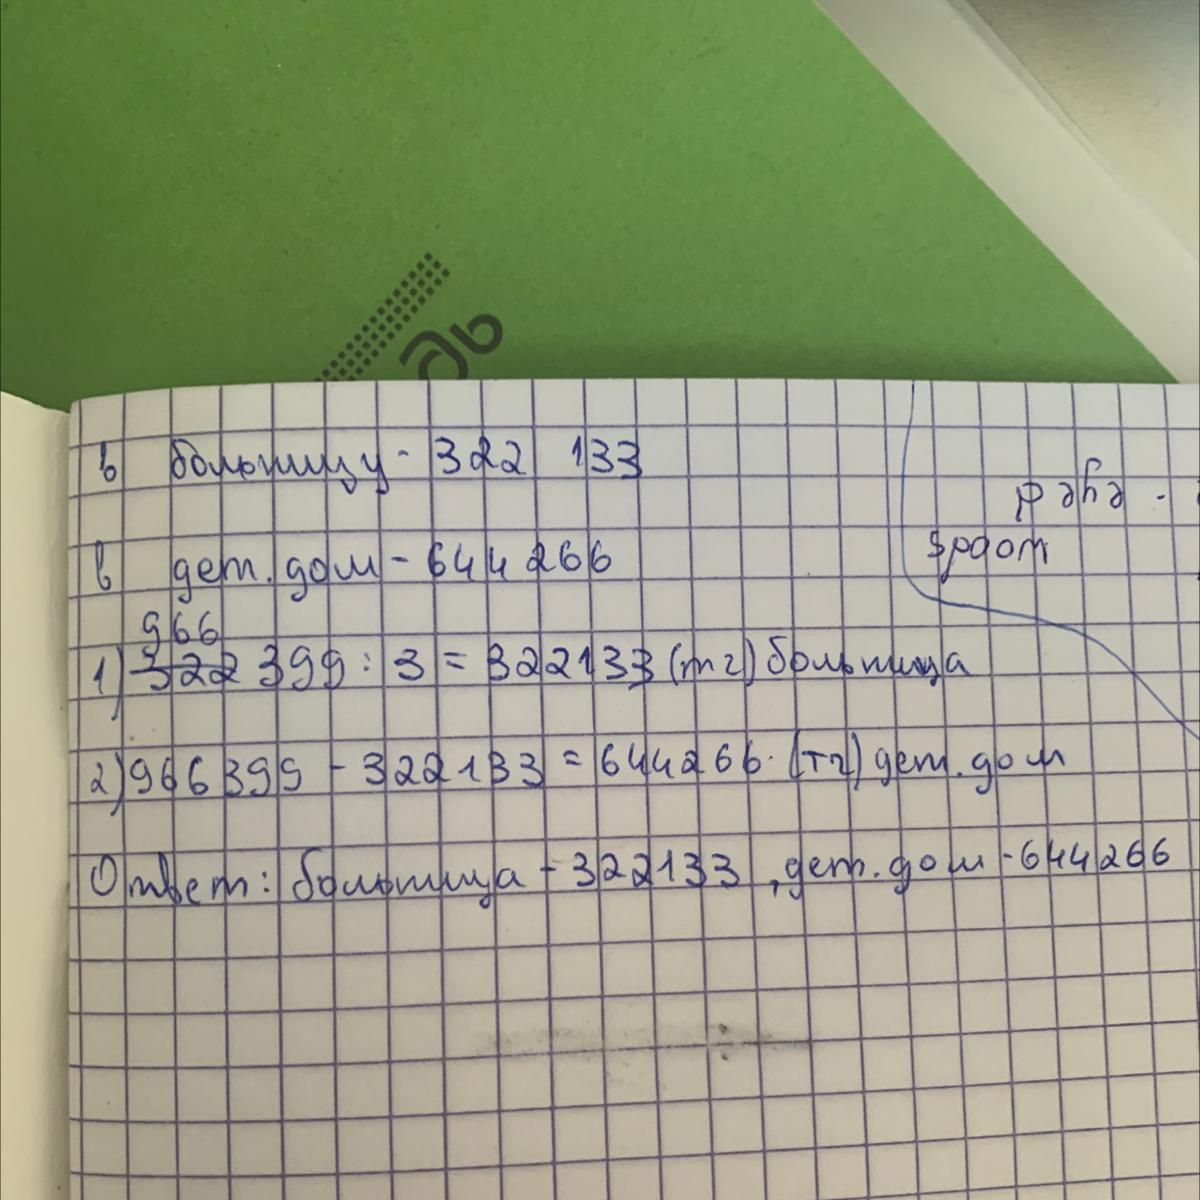 в больницу - 322 133
в дет. дом - 644 266
966
1) 322 399 : 3 = 322133 (тг) больница
2) 966 399 - 322133 = 644266. (тг) дет. дом
Ответ: больница - 322133, дет. дом - 644266